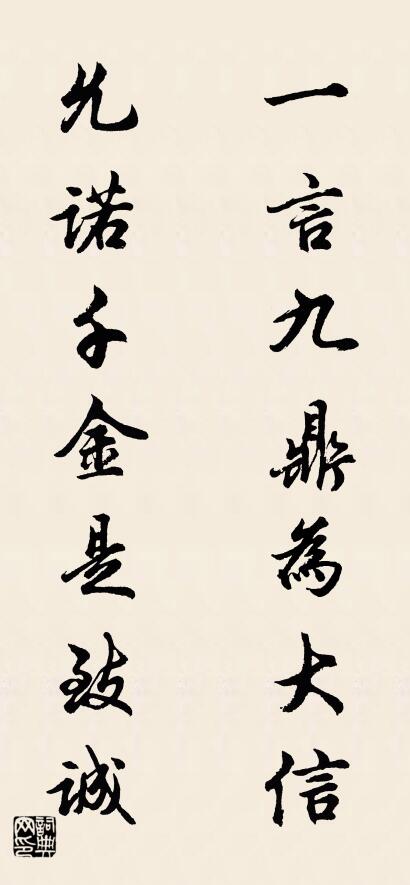 一言九鼎為大信
允诺千金是致诚
詞典网印